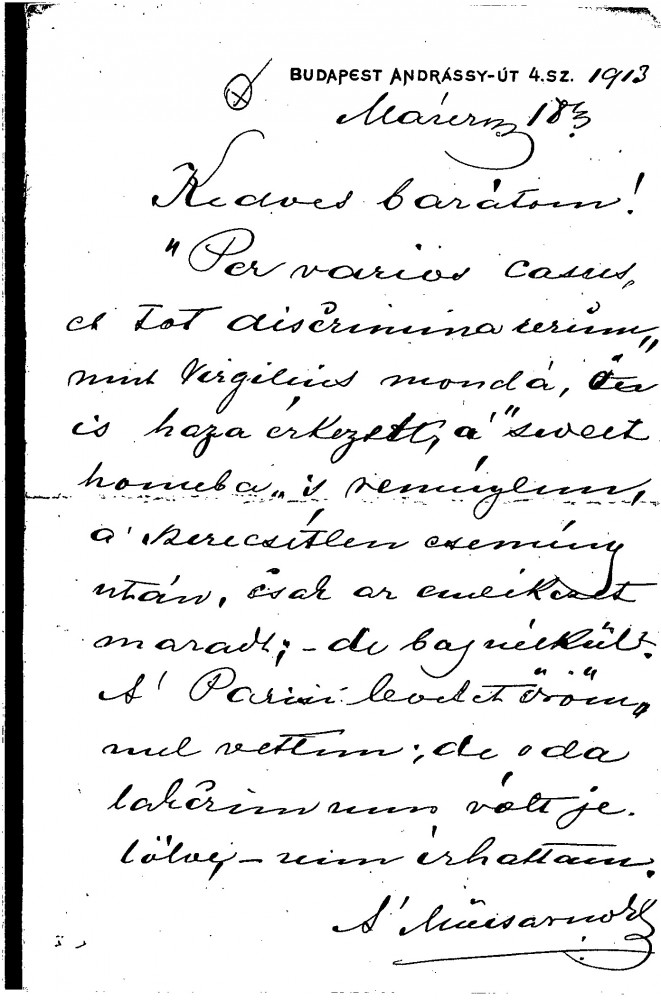 BUDAPEST ANDRÁSSY-ÚT 4.SZ. 1913
Március 18
Kedves barátom!
"Per varios casus,
et tot discrimina rerum„
mint Virgilius mondá, Ön
is haza érkezett, a' "sweet
homeba„ is reménylem,
a' szerecsétlen esemény
után, csak az emlékezet
maradt; - de baj nélkül.
A' Parisi levelet öröm„
mel vettem; de oda
lakczim nem vólt je„
lölve, - nem irhattam.
A' Műcsarnok